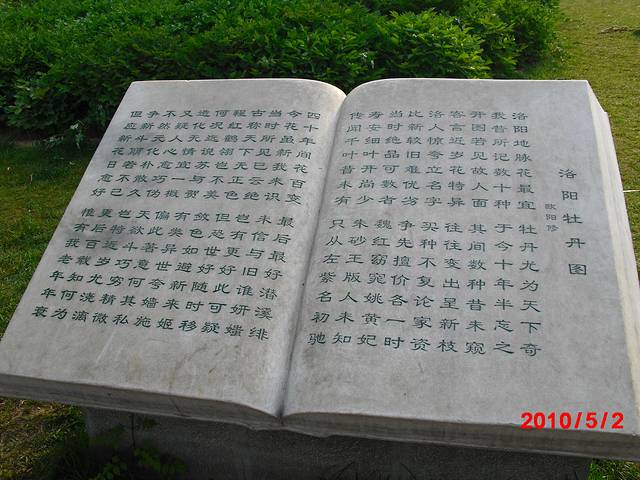 洛阳牡丹图
欧阳修
洛阳地脉花最宜 牡丹尤为天下奇
我昔所记数十种 于今十年半忘之
开图若见故人面 其间数种昔未窥
客言近岁花特异 往往变出呈新枝
洛人惊夸立名字 买种不复论家资
比新较旧难优劣 争先擅价各一时
当时绝品可数者 魏红窈窕姚黄妃
寿安细叶开尚少 朱砂玉版人未知
传闻千叶昔未有 只从左紫名初驰
四十年间花百变 最后最好潜溪绯
今花虽新我未识 未信与旧谁妍媸
当时所见已云绝 岂有更好此可疑
古称天下无正色 但恐世好随时移
鞓红鹤翎岂不美 敛色如避新来姬
何况远说苏与贺 有类异世夸嫱施
造化无情宜一概 偏此著意何其私
又疑人心愈巧伪 天欲斗巧穷精微
不然元化朴散久 岂特近岁尤浇漓
争新斗丽若不已 更后百载知何为
但应新花日愈好 惟有我老年年衰
2010/5/2